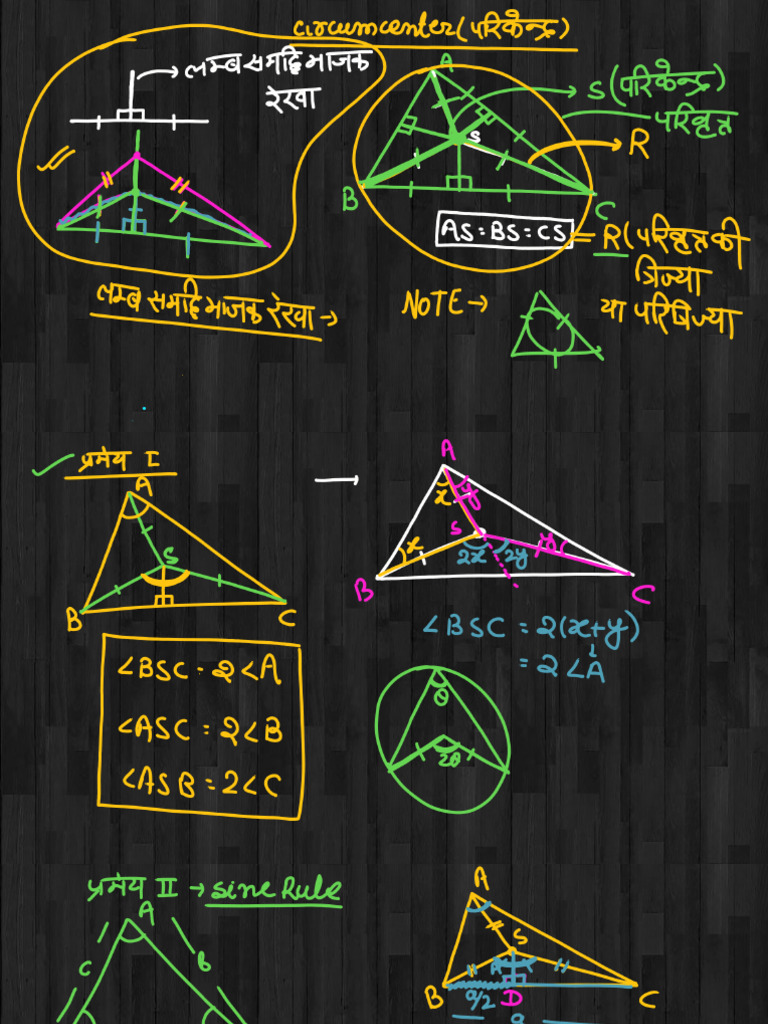 circumcenter(परिकेन्द्र)
लम्ब समद्विभाजक
रेखा
A
S(परिकेन्द्र)
परिवृत्त
S
R
B
C
AS = BS = CS = R(परिवृत्त की
त्रिज्या
या परित्रिज्या
लम्ब समद्विभाजक रेखा →
NOTE →
प्रमेय I
A
S
B
C
∠BSC = 2∠A
∠ASC = 2∠B
∠ASB = 2∠C
A
x y
S
x
2x 2y
y
B
C
∠BSC = 2(x+y)
= 2∠A
θ
2θ
प्रमेय II → sine Rule
A
C
B
A
S
A
B
a/2
D
C
a